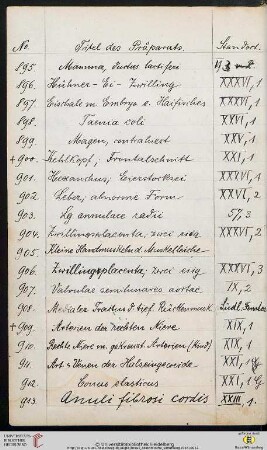 No. Titel des Präparats. Standort.
895. Mamma, Ductus lactiferi
896. Hühner-Ei-Zwilling XXXVI, 1
897. Eischale m. Embryo e. Haifisches XXXVI, 1
898. Taenia coli XXV, 1
899. Magen, contrahiert XXV, 1
+900. Kehlkopf, Frontalschnitt XXI, 1
901. Hexanchus, Eierstocksei XXXVI, 1
902. Leber, abnorme Form XXVI, 2
903. Lg annulare radii
904. Zwillingsplacenta, zwei eiig XXXVI, 2
905. Kleine Handmuskeln d. Muskelleiche
906. Zwillingsplacenta, zwei eiig XXXVI, 3
907. Valvulae semilunares aortae IX, 2
908. Medialer d. tief. Rückenmusk. Südl. Fenster
+909. Arterien der rechten Niere XIX, 1
910. Rechte Niere m. gekreuzt. Arterien (Kind) XIX, 1
911. Art. + Venen der Halseingeweide XXI, 1
912. Conus elasticus XXI, 1
913. Anuli fibrosi cordis XXIII, 1.
© Universitätsbibliothek Heidelberg